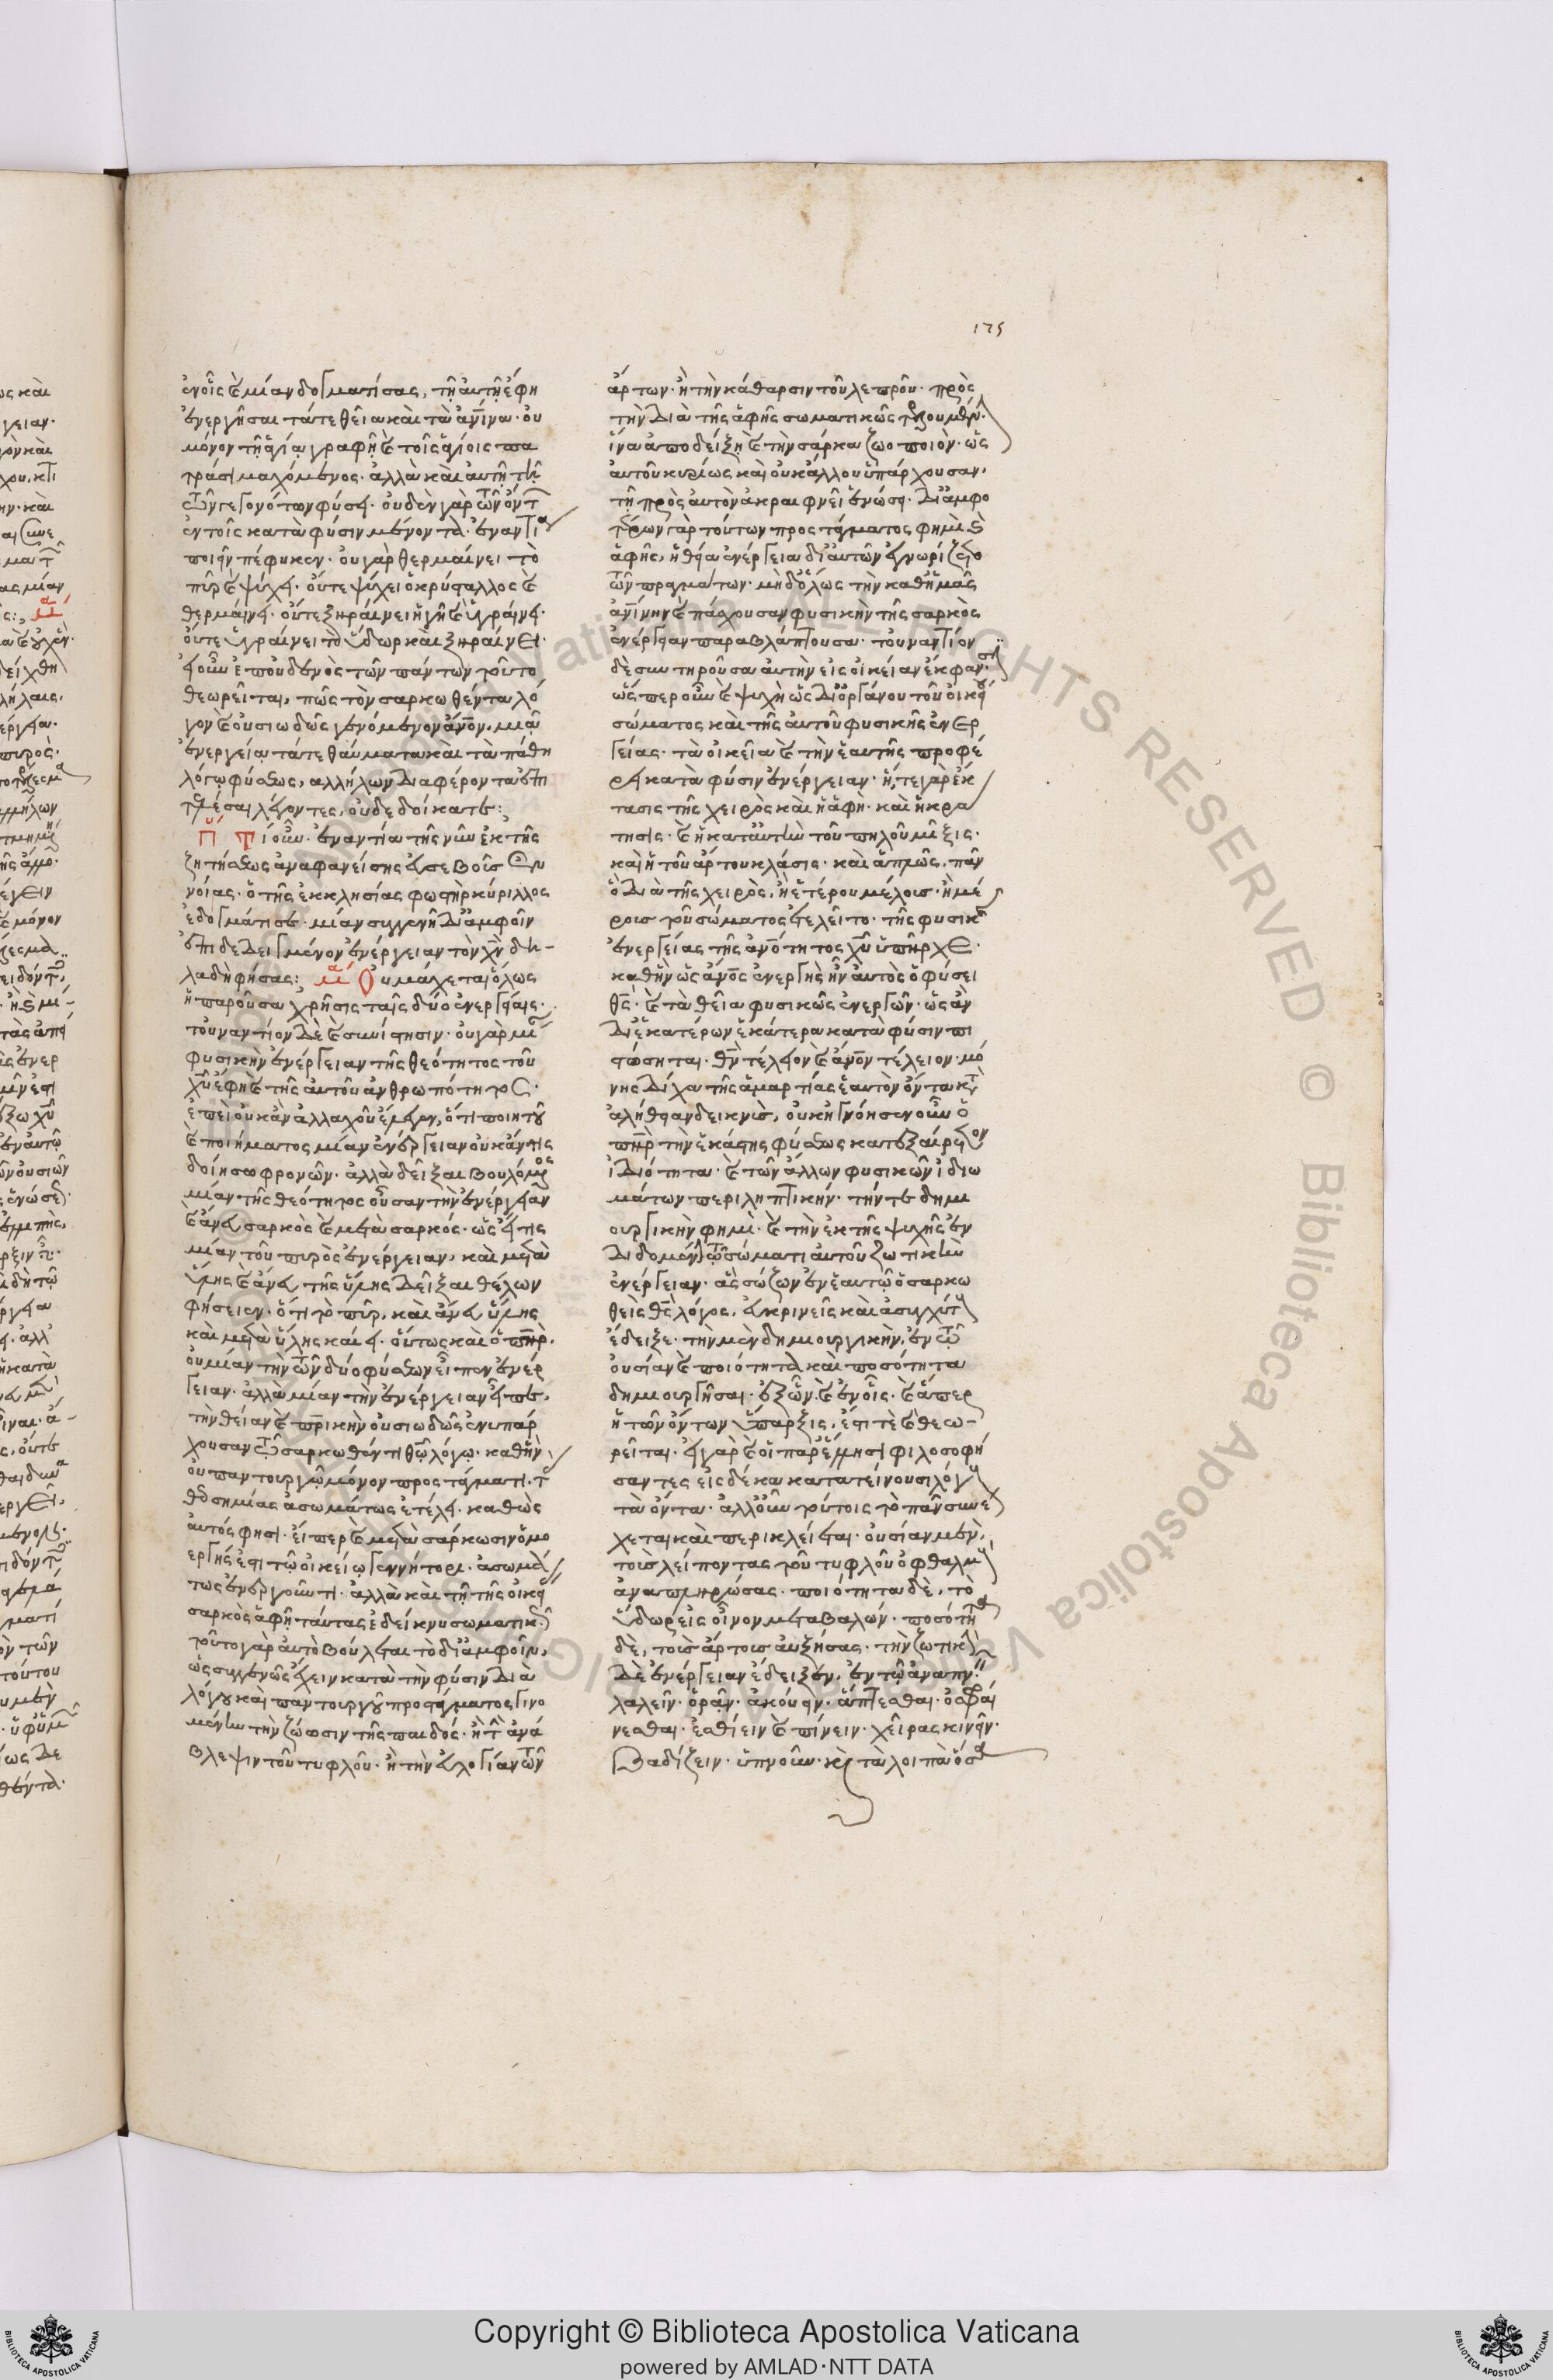 175
ἐν οἷς καὶ μίαν δογματίσας, τῇ αὐτῇ ἔφη
ἐνεργῆσαι τά τε θεῖα καὶ τὰ ἀνινα· οὐ
μόνον τῇ ἁγίᾳ γραφῇ καὶ τοῖς ἁγίοις πα
τράσι μαχόμενος· ἀλλὰ καὶ αὐτῇ τῇ
τῶν γεγονότων φύσει· οὐδὲν γὰρ τῶν ὄντ
ἐν τοῖς κατὰ φύσιν μένοντα· ἐναντία
ποιεῖν πέφυκεν· οὐ γὰρ θερμαίνει τὸ
πῦρ καὶ ψύχει· οὔτε ψύχει ὁ κρύσταλλος καὶ
θερμαίνει· οὔτε ξηραίνει ἡ γῆ καὶ ὑγραίνει·
οὔτε ὑγραίνει τὸ ὕδωρ καὶ ξηραίνει·
εἰ οὖν ἐπ' οὐδενὸς τῶν πάντων τοῦτο
θεωρεῖται, πῶς τὸν σαρκωθέντα λό
γον καὶ οὐσιωδῶς γενόμενον ἄνον, μιᾷ
ἐνεργείᾳ τά τε θαύματα καὶ τὰ πάθη
λόγῳ φύσεως, ἀλλήλων διαφέροντα ἐπι
τελέσαι λέγοντες, οὐ δεδοίκατε:
Π Τί οὖν· ἐναντία τῆς νῦν ἐκ τῆς
ζητήσεως ἀναφανείσης εὐσεβοῦς ἐν
νοίας· ὁ τῆς ἐκκλησίας φωστὴρ κύριλλος
ἐδογμάτισε· μίαν συγγενῆ δι' ἀμφοῖν
ἐπιδεδειγμένον ἐνέργειαν τὸν χν δη-
λαδὴ φήσας: μα Οὐ μάχεται ὅλως
ἡ παροῦσα χρῆσις ταῖς δύο ἐνεργείαις·
τοὐναντίον δὲ καὶ συνίστησιν· οὐ γὰρ μί
φυσικὴν ἐνέργειαν τῆς θεότητος τοῦ
χυ ἔφη καὶ τῆς αὐτοῦ ἀνθρωπότητος·
ἐπεὶ οὐκ ἂν ἀλλαχοῦ ἔλεγεν, ὅτι ποιητοῦ
καὶ ποιήματος μίαν ἐνέργειαν οὐκ ἄν τις
δοίη σωφρονῶν· ἀλλὰ δεῖξαι βουλόμενος
μίαν τῆς θεότητος οὖσαν τὴν ἐνέργειαν
καὶ ἄνευ σαρκὸς καὶ μετὰ σαρκός· ὡς εἴ τις
μίαν τοῦ πυρὸς ἐνέργειαν, καὶ μετὰ
ὕλης καὶ ἄνευ τῆς ὕλης δεῖξαι θέλων
φήσειεν· ὅτι τὸ πῦρ, καὶ ἄνευ ὕλης
καὶ μετὰ ὕλης καίει· οὕτως καὶ ὁ πηρ.
οὐ μίαν τὴν τῶν δύο φύσεων εἶπον ἐνέρ
γειαν· ἀλλὰ μίαν τὴν ἐνέργειαν εἶπε,
τὴν θείαν καὶ πρικὴν οὐσιωδῶς ἐνυπάρ
χουσαν τῷ σαρκωθέντι θω λόγῳ· καθ' ἣν
οὐ παντουργῷ μόνον προστάγματι· τ
θεοσημίας ἀσωμάτως ἐτέλει· καθὼς
αὐτός φησι· εἴπερ καὶ μετὰ σάρκωσιν ὁμο
εργής ἐστι τῷ οἰκείῳ γεννήτορι· ἀσωμά
τως ἐνεργοῦντι· ἀλλὰ καὶ τῇ τῆς οἰκεί
σαρκὸς ἁφῇ ταύτας ἐδείκνυ σωματικ
τοῦτο γὰρ αὐτὸ βούλεται τὸ δι' ἀμφοῖν,
ὡς συγγενῶς ἔχειν κατὰ τὴν φύσιν διὰ
λόγου καὶ παντουργοῦ προστάγματος γινο
μένην τὴν ζώωσιν τῆς παιδός· ἢ τ ἀνά
βλεψιν τοῦ τυφλοῦ· ἢ τὴν εὐλογίαν τῶν
ἄρτων· ἢ τὴν κάθαρσιν τοῦ λεπροῦ· πρὸς
τὴν διὰ τῆς ἁφῆς σωματικῶς τελουμέν·
ἵνα ἀποδείξῃ καὶ τὴν σάρκα ζωοποιὸν· ὡς
αὐτοῦ κυρίως καὶ οὐκ ἄλλου ὑπάρχουσαν,
τῇ πρὸς αὐτὸν ἀκραιφνεῖ ἑνώσει· δι' ἀμφο
τέρων γὰρ τούτων προστάγματος φημὶ καὶ
ἁφῆς, ἡ θεία ἐνέργεια δι' αὐτῶν ἐγνωρίζετο
τῶν πραγμάτων· μηδόλως τὴν καθ' ἡμᾶς
ἀνινην καὶ πάσχουσαν φυσικὴν τῆς σαρκὸς
ἐνέργειαν παραβλάπτουσα· τοὐναντίον
δὲ συντηροῦσα αὐτὴν εἰς οἰκείαν ἔκφανσιν
ὥσπερ οὖν καὶ ψυχὴ ὡς δι' ὀργάνου τοῦ οἰκείου
σώματος καὶ τῆς αὐτοῦ φυσικῆς ἐνερ
γείας· τὰ οἰκεῖα καὶ τὴν ἑαυτῆς προφέ
ρει κατὰ φύσιν ἐνέργειαν· ἥ, τε γὰρ ἔκ
τασις τῆς χειρὸς καὶ ἡ ἁφὴ· καὶ ἡ κρά
τησις· καὶ ἡ κατ' αὐτὴν τοῦ πηλοῦ μῖξις·
καὶ ἡ τοῦ ἄρτου κλάσις· καὶ ἁπλῶς, πᾶν
ὃ διὰ τῆς χειρὸς, ἢ ἑτέρου μέλους· ἢ μέ
ρους τοῦ σώματος ἐτελεῖτο· τῆς φυσικ
ἐνεργείας τῆς ἀνοτητος χυ ὑπῆρχε·
καθ' ἣν ὡς ἄνος ἐνεργὴς ἦν αὐτὸς ὁ φύσει
θς· καὶ τὰ θεῖα φυσικῶς ἐνεργῶν· ὡς ἂν
δι' ἑκατέρων ἑκάτερα κατὰ φύσιν πι
στώσηται· θν τέλειον καὶ ἄνον τέλειον· μό
νης δίχα τῆς ἁμαρτίας ἑαυτὸν ὄντα κατ
ἀλήθειαν δεικνύς, οὐκ ἠγνόησεν οὖν ὁ
πηρ τὴν ἑκάστης φύσεως κατεξαίρετον
ἰδιότητα· καὶ τῶν ἄλλων φυσικῶν ἰδιω
μάτων περιληπτικήν· τήν τε δημι
ουργικὴν φημὶ· καὶ τὴν ἐκ τῆς ψυχῆς ἐν
διδομένην τῷ σώματι αὐτοῦ ζωτικὴν
ἐνέργειαν· ἃς σώζων ἐν ἑαυτῷ ὁ σαρκω
θεὶς θς λόγος, εὐκρινεῖς καὶ ἀσυγχύτ
ἔδειξε· τὴν μὲν δημιουργικὴν, ἐν τῷ
οὐσίαν καὶ ποιότητα καὶ ποσότητα
δημιουργῆσαι· ἐξ ὧν· καὶ ἐν οἷς· καὶ ἅπερ
ἡ τῶν ὄντων ὕπαρξις, ἐστί τε καὶ θεω-
ρεῖται· εἰ γὰρ καὶ οἱ παρ' ἕλλησι φιλοσοφή
σαντες εἰς δέκα κατατείνουσι λόγ
τὰ ὄντα· ἀλλ' οὖν τούτοις τὸ πᾶν συνέ
χεται καὶ περικλείεται· οὐσίαν μὲν,
τοὺς λείποντας τοῦ τυφλοῦ ὀφθαλμ
ἀναπληρώσας· ποιότητα δὲ, τὸ
ὕδωρ εἰς οἶνον μεταβαλών· ποσότητα
δὲ, τοὺς ἄρτους αὐξήσας· τὴν ζωτικ
δὲ ἐνέργειαν ἔδειξεν, ἐν τῷ ἀναπν
λαλεῖν· ὁρᾶν· ἀκούειν· ἅπτεσθαι· ὀσφραί
νεσθαι· ἐσθίειν καὶ πίνειν· χεῖρας κινεῖν·
βαδίζειν· ὑπνοῦν· καὶ τὰ λοιπὰ ὅσα
Copyright © Biblioteca Apostolica Vaticana
powered by AMLAD·NTT DATA